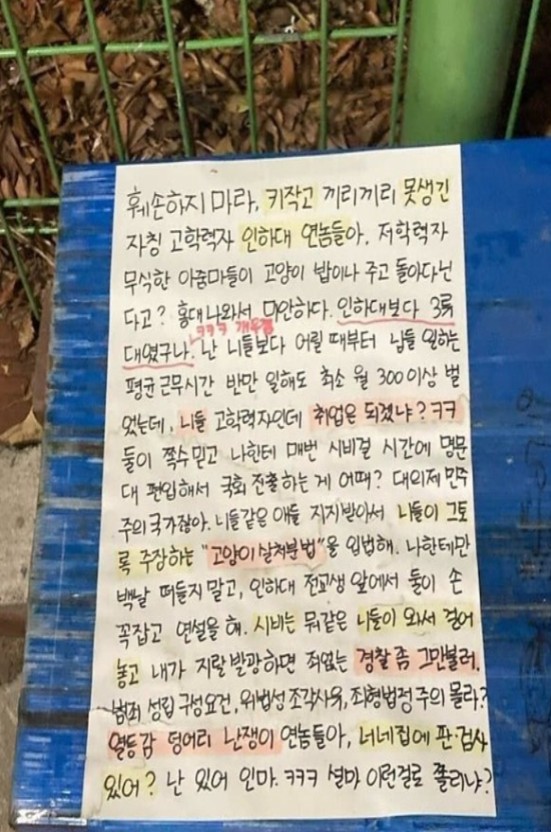 훼손하지 마라, 키작고 끼리끼리 못생긴
자칭 고학력자 인하대 연놈들아. 저학력자
무식한 아줌마들이 고양이 밥이나 주고 돌아다닌
다고? 홍대 나와서 미안하다. 인하대보다 3류
대였구나. ㅋㅋㅋ 개웃겜
난 니들보다 어릴 때부터 님들 일하는
평균 근무시간 반만 일해도 최소 월 300 이상 벌
었는데, 니들 고학력자인데 취업은 되겠냐? ㅋㅋ
둘이 쪽수 믿고 나한테 매번 시비걸 시간에 명문
대 편입해서 국회 진출하는 게 어때? 대의제 민주
주의 국가잖아. 니들같은 애들 지지받아서 니들이 그토
록 주장하는 "고양이 살처분법"을 입법해. 나한테만
백날 떠들지 말고, 인하대 전교생 앞에서 둘이 손
꼭잡고 연설을 해. 시비는 뭐같은 니들이 와서 걸어
놓고 내가 지랄발광하면 죄없는 경찰 좀 그만불러.
범죄 성립 구성요건, 위법성 조각사유, 죄형법정주의 몰라?
열등감 덩어리 난쟁이 연놈들아, 너네집에 판·검사
있어? 난 있어 인마. ㅋㅋㅋ 설마 이런걸로 쫄리냐?